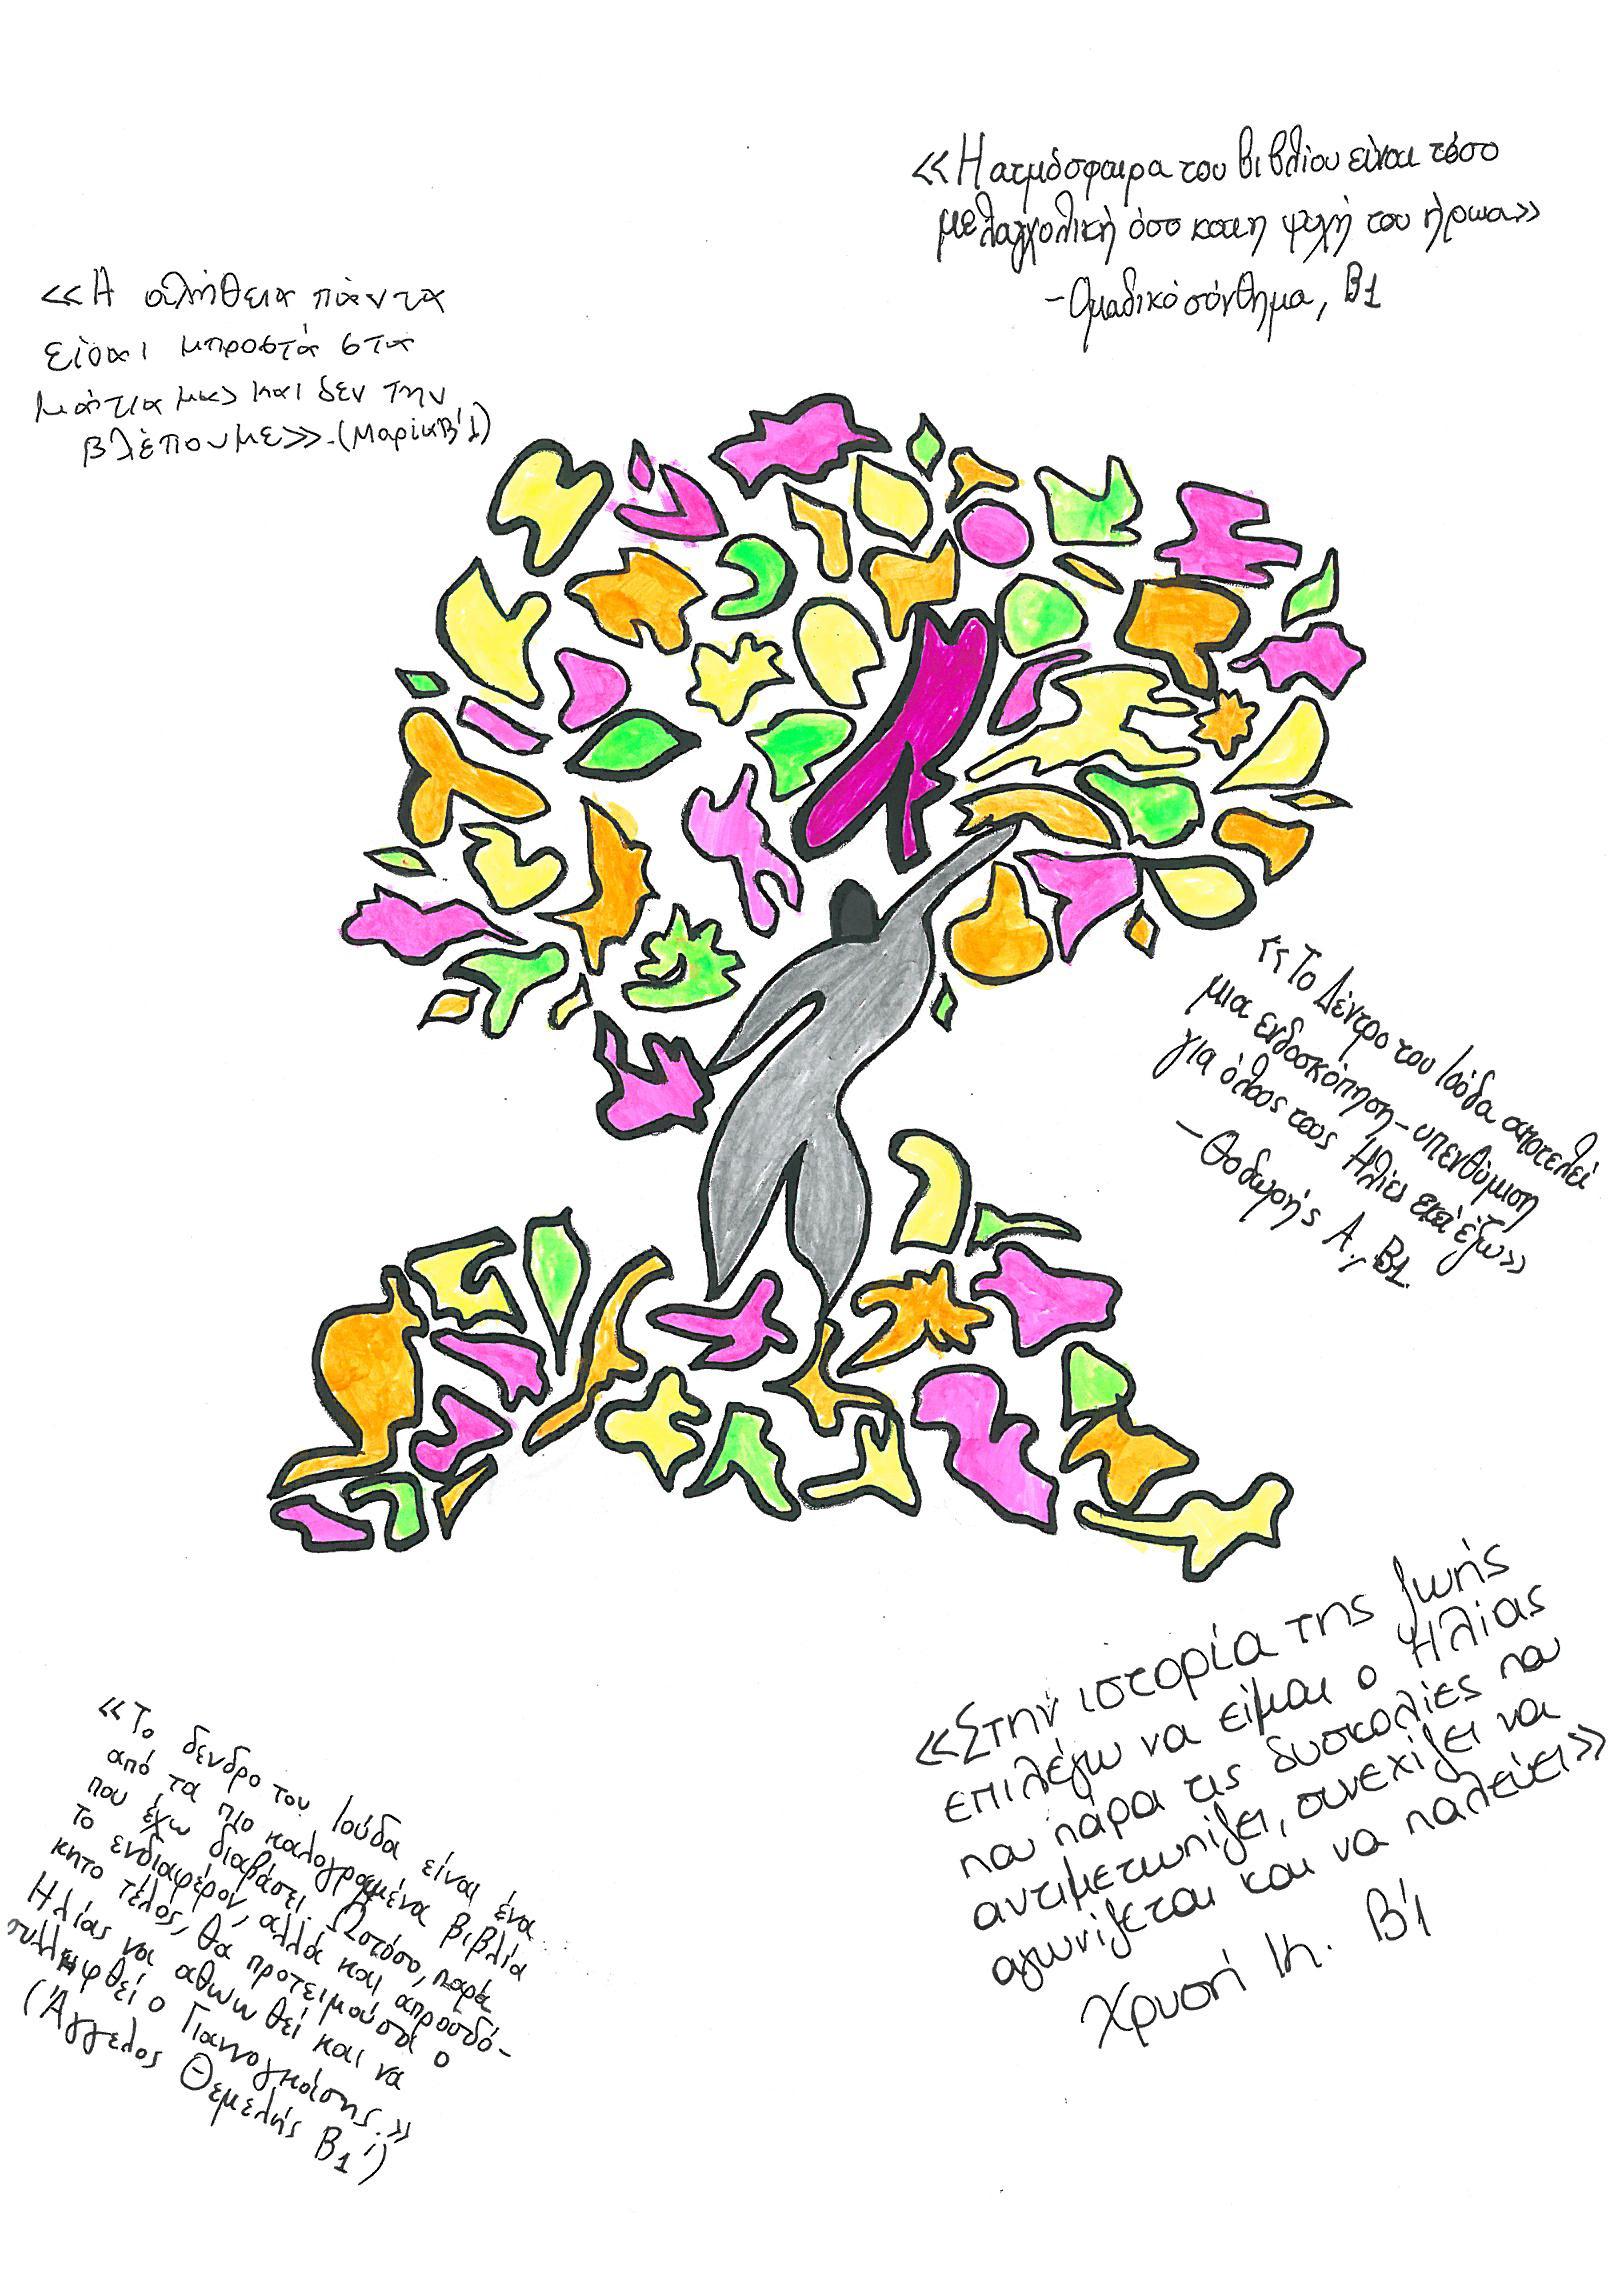 «Η ατμόσφαιρα του βιβλίου είναι τόσο
μελαγχολική όσο και η ψυχή του ήρωα»
- Ομαδικό σύνθημα, Β1
«Η αλήθεια πάντα
είναι μπροστά στα
μάτια μας και δεν την
βλέπουμε». (Μαρία Β'1)
«Το Δέντρο του Ιούδα αποτελεί
μια ενδοσκόπηση-υπενθύμιση
για όλους τους Ηλίες εκεί έξω»
- Θοδωρής Α., Β1.
«Στην ιστορία της ζωής
επιλέγω να είμαι ο Ηλίας
που πάρα τις δυσκολίες που
αντιμετωπίζει, συνεχίζει να
αγωνίζεται και να παλεύει»
Χρυσή Κ. Β'1
«Το δενδρο του Ιούδα είναι ένα
από τα πιο καλογραμμένα βιβλία
που έχω διαβάσει. Ωστόσο, παρά
το ενδιαφέρον, αλλά και απροσδό-
κητο τέλος, θα προτειμούσα ο
Ηλίας να αθωωθεί και να
συλληφθεί ο Γιαννογκάσης.»
(Άγγελος Θεμελής Β1')